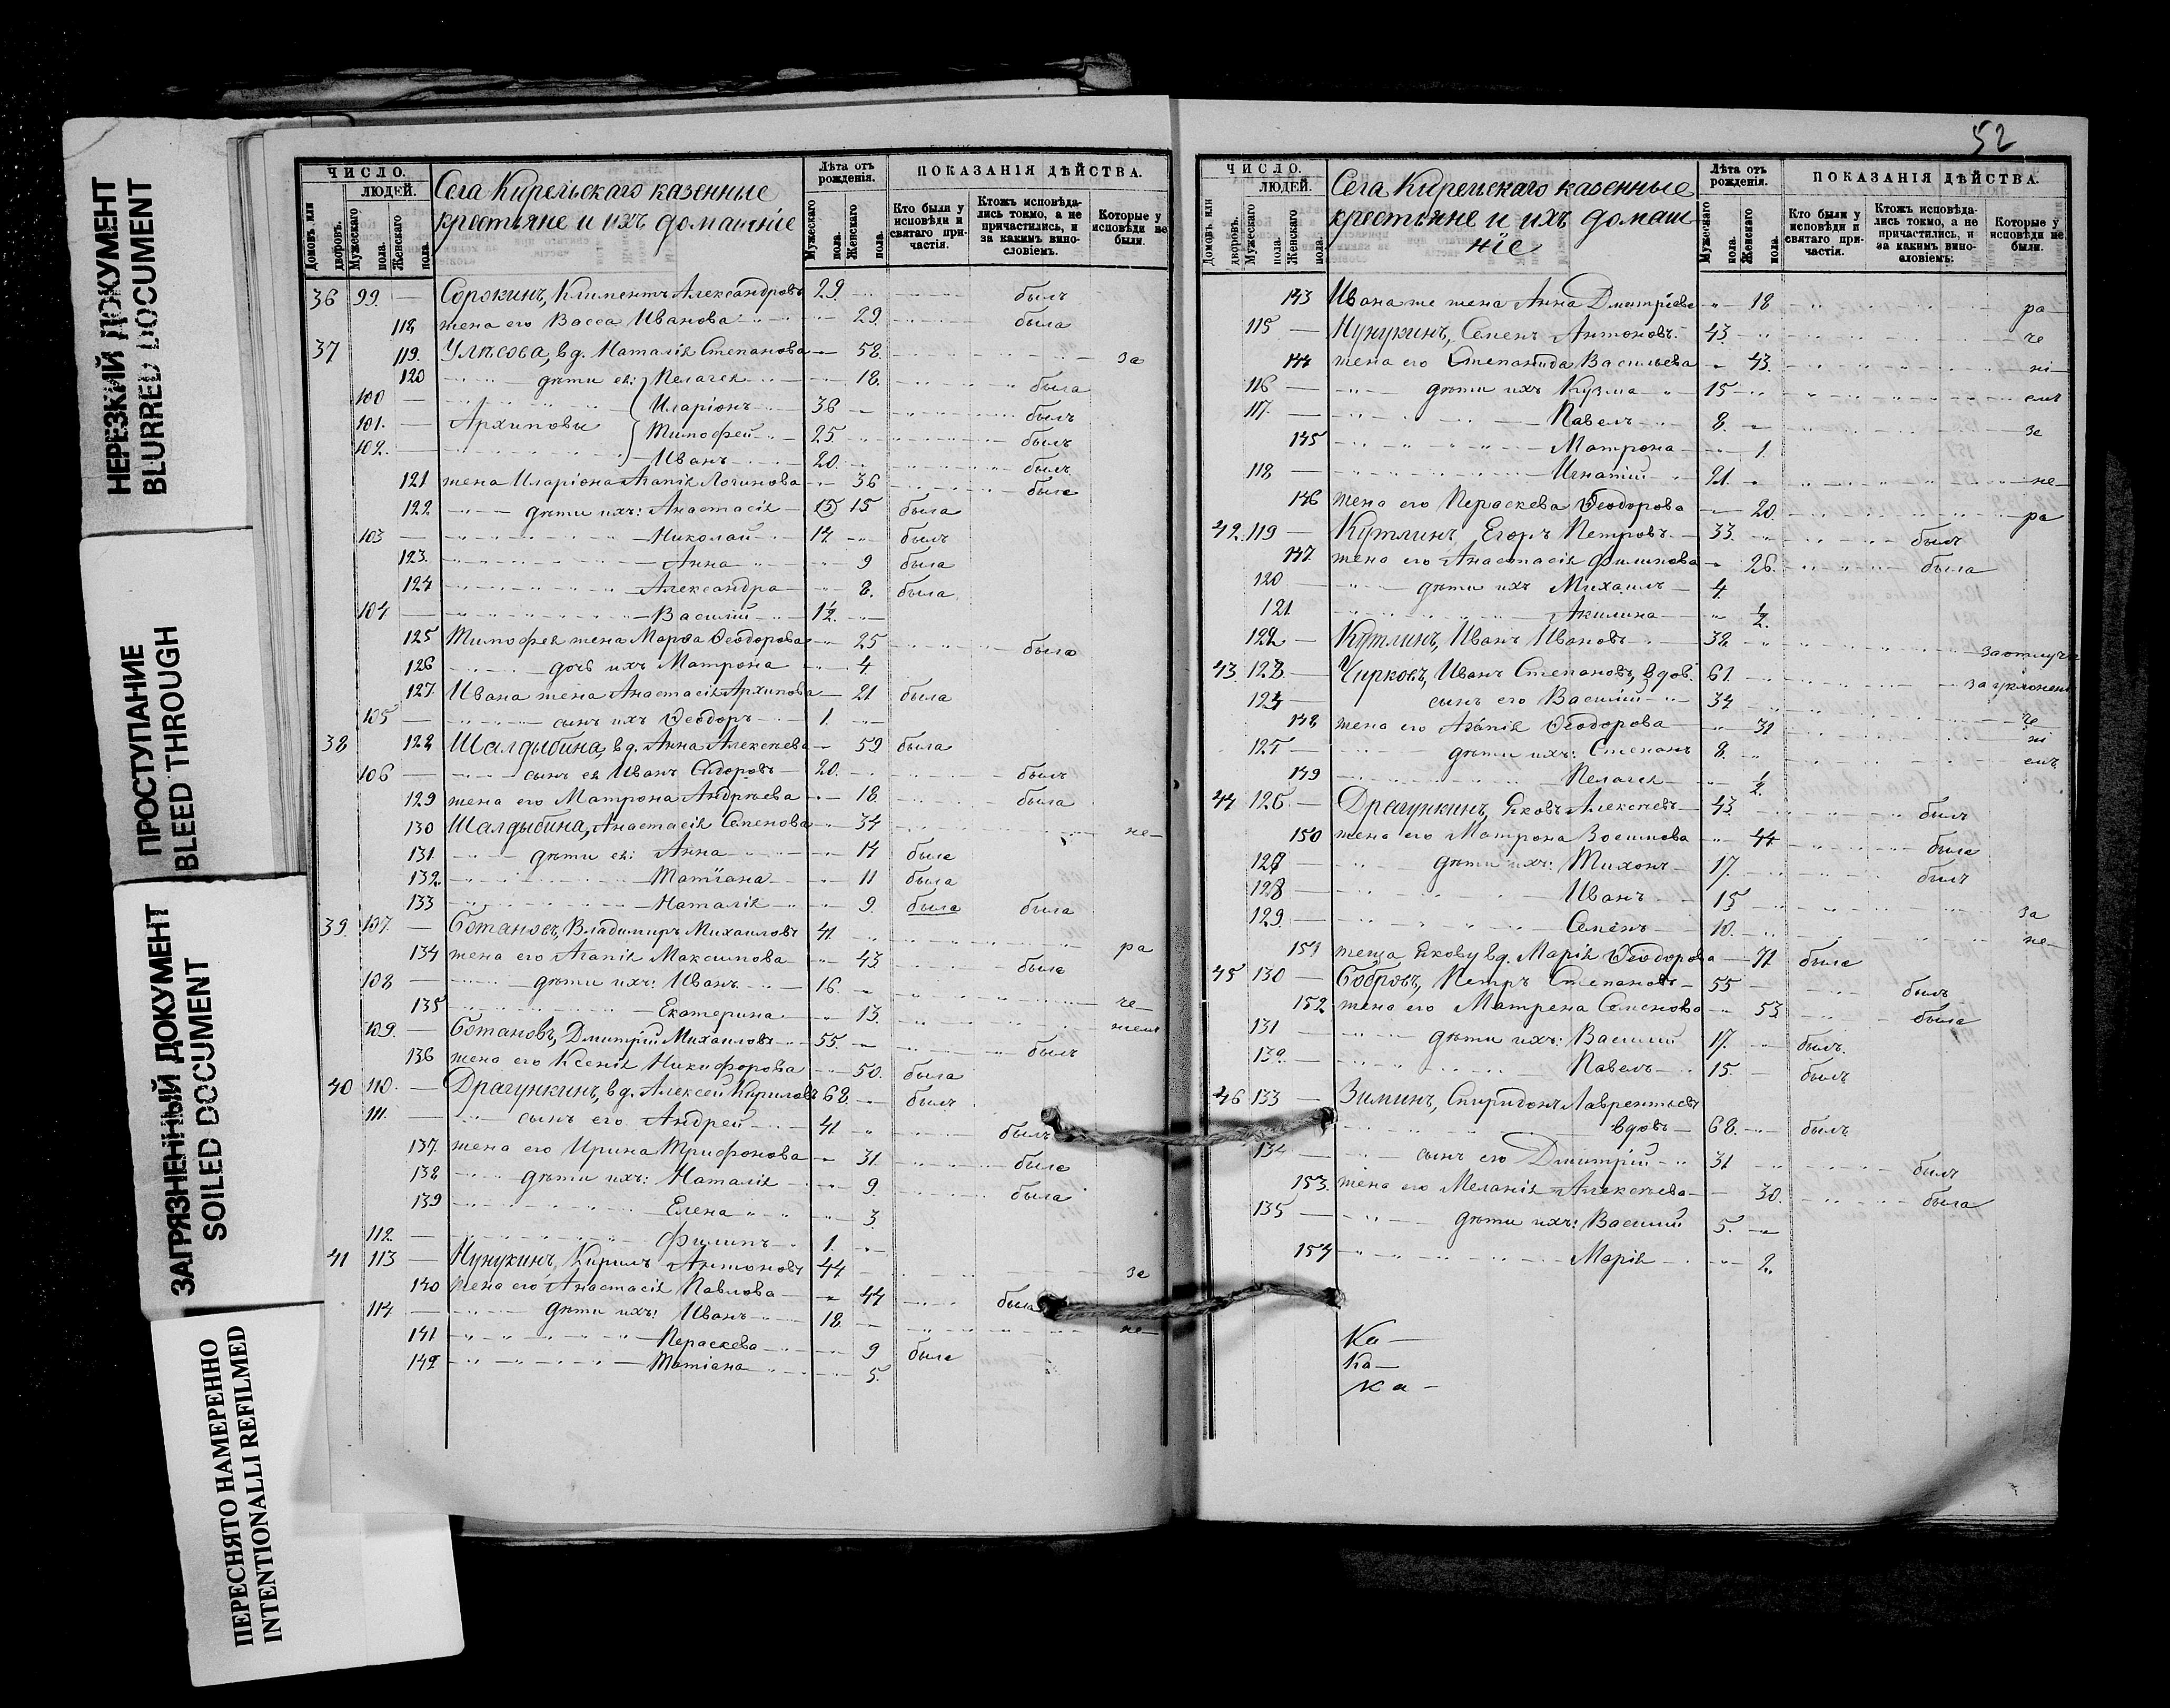 НЕРЕЗКИЙ ДОКУМЕНТ
BLURRED DOCUMENT
ПРОСТУПАНИЕ
BLEED THROUGH
ЗАГРЯЗНЕННЫЙ ДОКУМЕНТ
SOILED DOCUMENT
ПЕРЕСНЯТО НАМЕРЕННО
INTENTIONALLI REFILMED
ЧИСЛО.
ЛЮДЕЙ.
Домовъ или дворовъ.
Мужескаго пола.
Женскаго пола.
Села Кирельскаго казенные
крестьяне и ихъ домашніе
Лѣта отъ рожденія.
Мужескаго пола.
Женскаго пола.
ПОКАЗАНІЯ ДѢЙСТВА.
Кто были у исповѣди и святаго причастія.
Ктожъ исповѣдались токмо, а не причастились, и за какимъ винословіемъ.
Которые у исповѣди не были.
36 99. — Сорокинъ, Климентъ Александровъ 29. былъ
118 жена его Васса Иванова 29. была
37 119. Улѣсова, вд. Наталія Степанова 58. за
120 дѣти ея: Пелагея 18. была
100 — Иларіонъ 36 былъ
101. — Архиповы Тимофей 25 былъ
102. — Иванъ 20. былъ
121 жена Иларіона Агапія Логинова 36 была
122 дѣти ихъ: Анастасія 15 была
103 — Николай 14 былъ
123. Анна 9 была
124 Александра 8. была
104 — Василій 1½
125 Тимофея жена Марѳа Ѳеодорова 25 была
126 дочь ихъ Матрона 4
127. Ивана жена Анастасія Архипова 21 была
105 — сынъ ихъ Ѳеодоръ 1.
38 128 Шалдыбина, вд. Анна Алексѣева 59 была
106 — сынъ ея Иванъ Сидоровъ 20. былъ
129 жена его Матрона Андрѣева 18. была
130 Шалдыбина, Анастасія Семенова 34 не—
131. дѣти ея: Анна 14 была
132. Татіана 11 была
133 Наталія 9. была была
39. 107. — Ботановъ, Владимиръ Михаиловъ 41. ра
134 жена его Агапія Максимова 43. была
108 — дѣти ихъ: Иванъ 16. че—
135 Екатерина 13.
109. — Ботановъ, Дмитрій Михаиловъ 55. былъ
136 жена его Ксенія Никифорова 50. была
40 110. — Драгункинъ, вд. Алексѣй Кириловъ 68. былъ
111. — сынъ его Андрей 41. былъ
137. жена его Ирина Трифонова 31. была
138 дѣти ихъ: Наталія 9. была
139 Елена 3.
112. — Филипъ 1.
41 113 — Нунукинъ, Кирилъ Антоновъ 44 за
140 жена его Анастасія Павлова 44 была
114 — дѣти ихъ: Иванъ 18. не—
141 Параскева 9 была
142 Татіана 5.
52
ЧИСЛО.
ЛЮДЕЙ.
Домовъ или дворовъ.
Мужескаго пола.
Женскаго пола.
Села Кирельскаго казенные
крестьяне и ихъ домаш
ніе
Лѣта отъ рожденія.
Мужескаго пола.
Женскаго пола.
ПОКАЗАНІЯ ДѢЙСТВА.
Кто были у исповѣди и святаго причастія.
Ктожъ исповѣдались токмо, а не причастились, и за какимъ винословіемъ:
Которые у исповѣди не были.
143 Ивана же жена Анна Дмитріева 18 ра—
115 — Нунукинъ, Семенъ Антоновъ. 43 че
144 жена его Степанида Васильева 43. ні—
116 — дѣти ихъ Кузма 15 емъ
117. — Павелъ 8. за
145 Матрона 1.
118 — Игнатій 21. не—
146 жена его Пераскева Ѳеодорова 20. ра
42. 119 — Кутлинъ, Егоръ Петровъ. 33. былъ
147. жена его Анастасія Филипова 26. была
120 — дѣти ихъ Михаилъ 4.
121. Акилина ½
122 — Кутлинъ, Иванъ Ивановъ 38 за отлуч
43. 123 — Чирковъ, Иванъ Степановъ, вдов. 61. за уклонені
124 — сынъ его Василій 34 че
148. жена его Агапія Ѳеодорова 31 ні
125 — дѣти ихъ: Степанъ 8. емъ
149 Пелагея ½
44 126 — Драгункинъ, Яковъ Алексѣевъ 43. былъ
150 жена его Матрона Зосимова 44 была
127 — дѣти ихъ: Тихонъ 17. былъ
128 — Иванъ 15 за
129. — Семёнъ 10. не—
151 теща Якову вд. Марія Ѳеодорова 71 была
45 130 — Бобровъ, Петръ Степановъ 55 былъ
152 жена его Матрена Семенова 53 была
131 — дѣти ихъ: Василій 17. былъ.
132. — Павелъ 15. былъ
46 133 — Зиминъ, Спиридонъ Лаврентьевъ
вдовъ 68. былъ
134 — сынъ его Дмитрій 31 былъ
153. жена его Меланія Алексѣева 30. была
135 — дѣти ихъ: Василій 5.
154 Марія 2.
Ка —
Ка —
Ка —